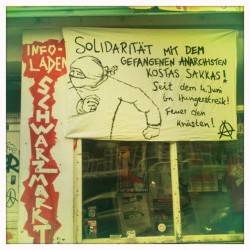 INFO-
LADEN
SCHWARZMARKT
SOLIDARITÄT MIT DEM
GEFANGENEN ANARCHISTEN
KOSTAS SAKKAS!
Seit dem 4. Juni
im Hungerstreik!
Feuer den
Knästen!